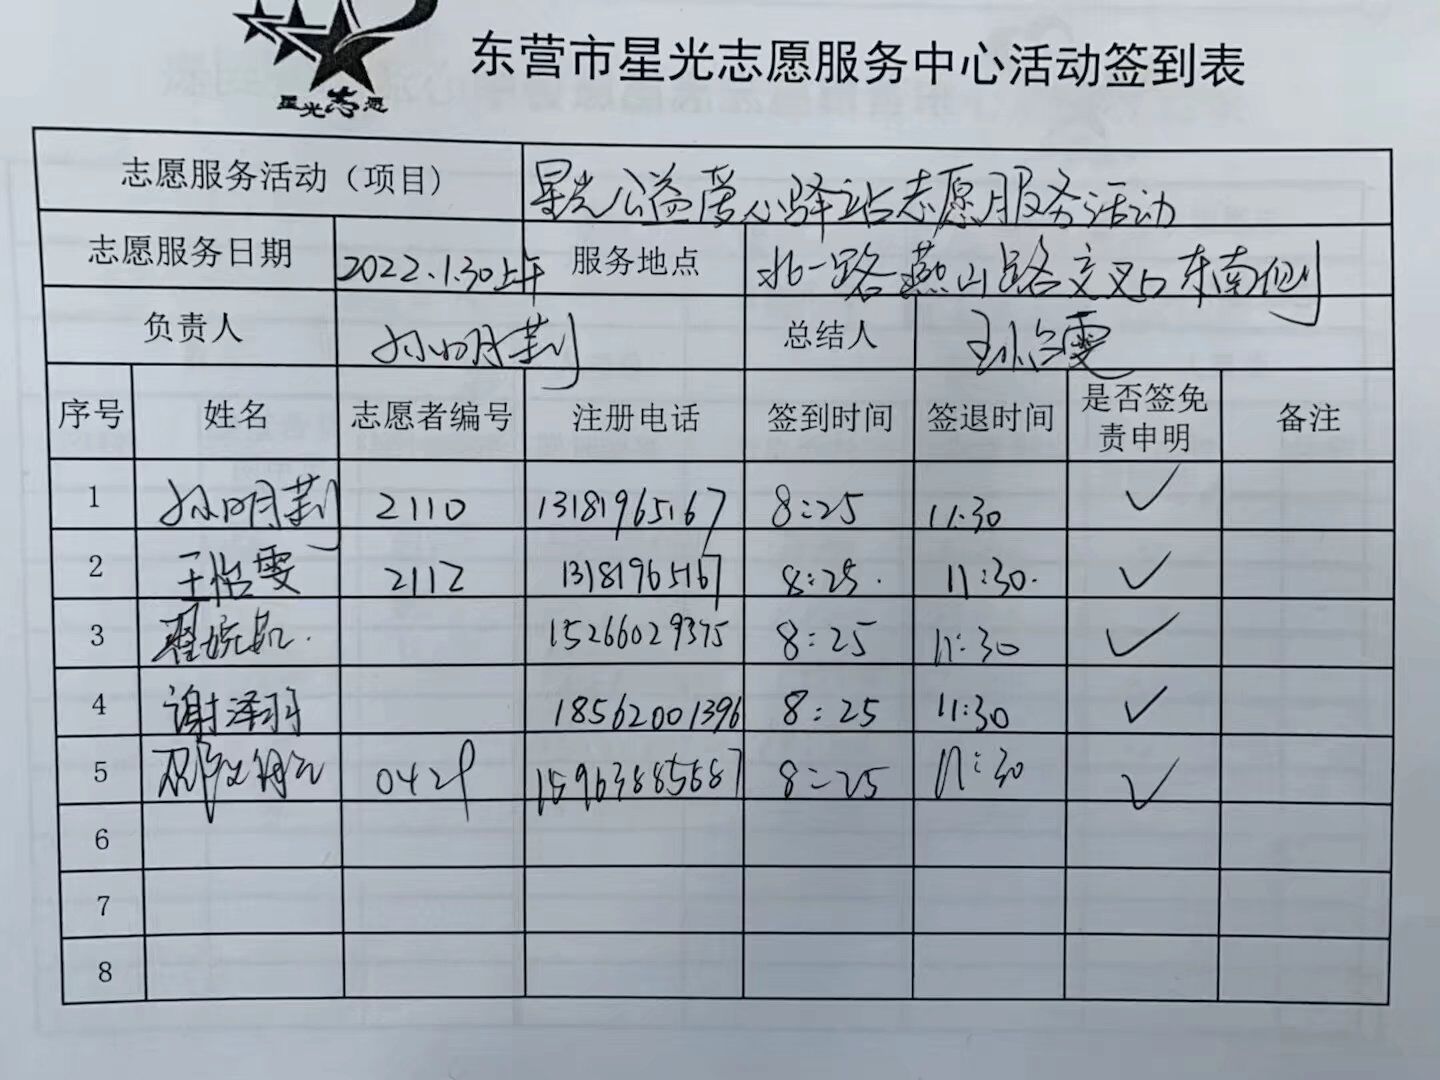 星光志愿
东营市星光志愿服务中心活动签到表
志愿服务活动（项目） 星光公益爱心驿站志愿服务活动
志愿服务日期 2022.1.30上午 服务地点 北一路燕山路交叉口东南侧
负责人 孙明莉 总结人 王怡雯
序号 姓名 志愿者编号 注册电话 签到时间 签退时间 是否签免责申明 备注
1 孙明莉 2110 13181965167 8:25 11:30 ✓
2 王怡雯 2112 13181965167 8:25. 11:30. ✓
3 15266029375 8:25 11:30 ✓
4 谢泽羽 18562001396 8:25 11:30 ✓
5 0429 15963885687 8:25 11:30 ✓
6
7
8